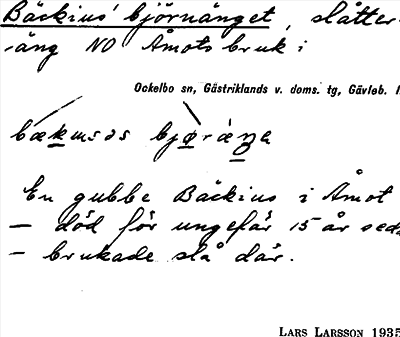 Bäckius' björnänget, slåtter-
-äng NO Åmots bruk i
Ockelbo sn, Gästriklands v. doms. tg, Gävleb. l
En gubbe Bäckius i Åmot
— död för ungefär 15 år sed
– brukade slå där.
LARS LARSSON 1935